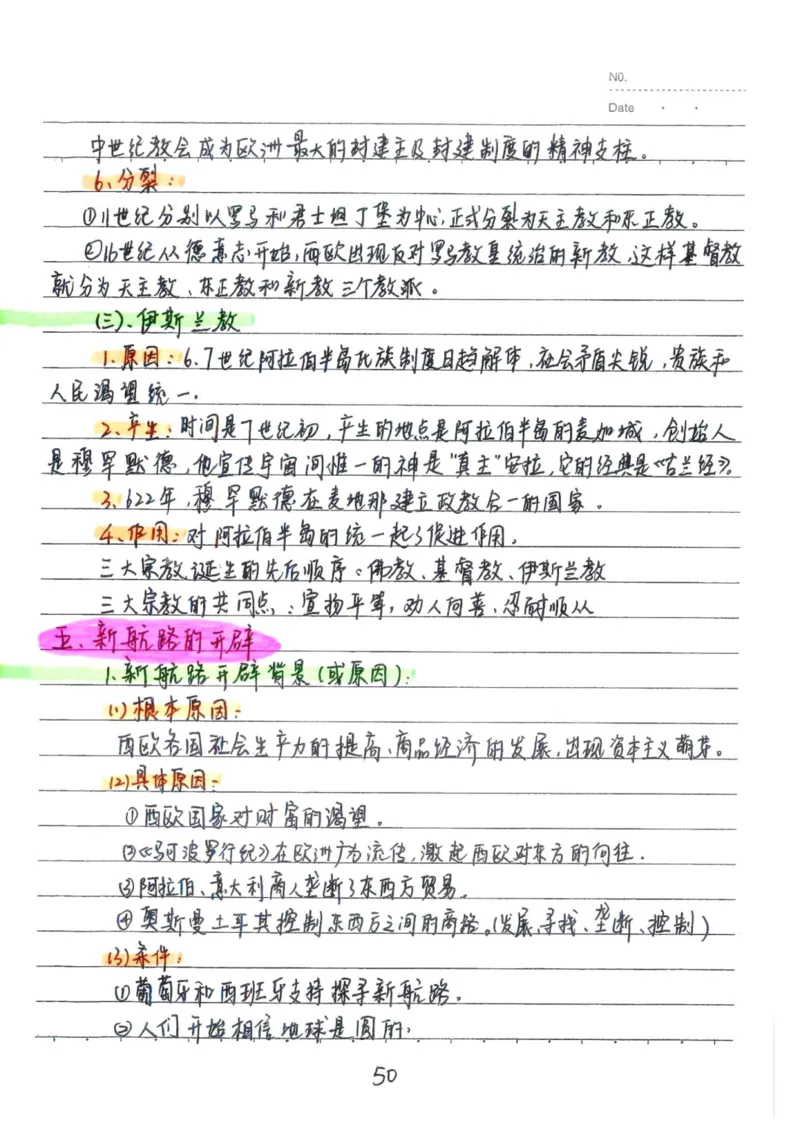 NO.
Date
中世纪教会成为欧洲最大的封建主及封建制度的精神支柱。
6、分裂：
①11世纪分别以罗马和君士坦丁堡为中心,正式分裂为天主教和东正教。
②16世纪从德意志开始,西欧出现反对罗马教皇统治的新教,这样基督教
就分为天主教、东正教和新教三个教派。
(三)、伊斯兰教
1、原因：6、7世纪阿拉伯半岛氏族制度日趋解体,社会矛盾尖锐,贵族和
人民渴望统一.
2、产生：时间是7世纪初,产生的地点是阿拉伯半岛的麦加城,创始人
是穆罕默德,他宣传宇宙间惟一的神是"真主"安拉,它的经典是《古兰经》。
3、622年,穆罕默德在麦地那建立政教合一的国家。
4、作用：对阿拉伯半岛的统一起了促进作用。
三大宗教诞生的先后顺序：佛教、基督教、伊斯兰教
三大宗教的共同点：宣扬平等,劝人向善、忍耐顺从
五、新航路的开辟
1、新航路开辟背景(或原因)：
(1)根本原因：
西欧各国社会生产力的提高、商品经济的发展,出现资本主义萌芽。
(2)具体原因：
①西欧国家对财富的渴望。
②《马可波罗行纪》在欧洲广为流传,激起西欧对东方的向往.
③阿拉伯、意大利商人垄断了东西方贸易.
④奥斯曼土耳其控制东西方之间的商路。(发展、寻找、垄断、控制)
(3)条件：
①葡萄牙和西班牙支持探寻新航路。
②人们开始相信地球是圆的;
50